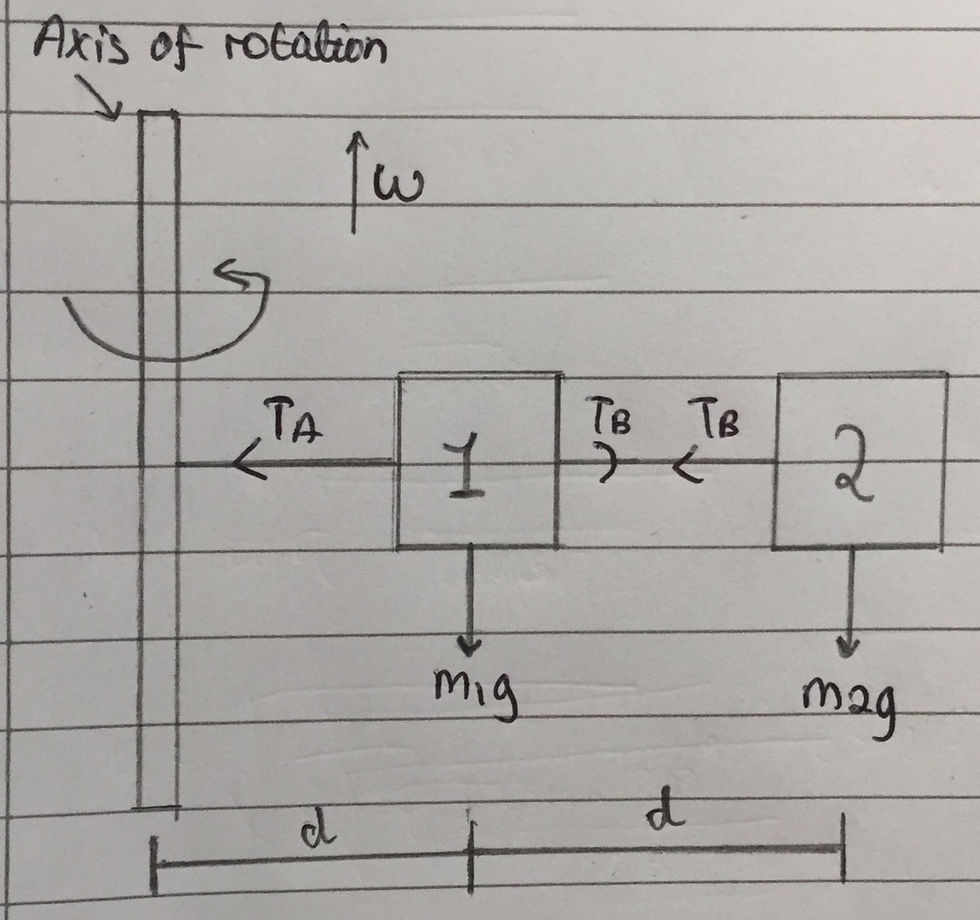 Axis of rotation
ω
TA
1
TB
TB
2
m1g
m2g
d
d